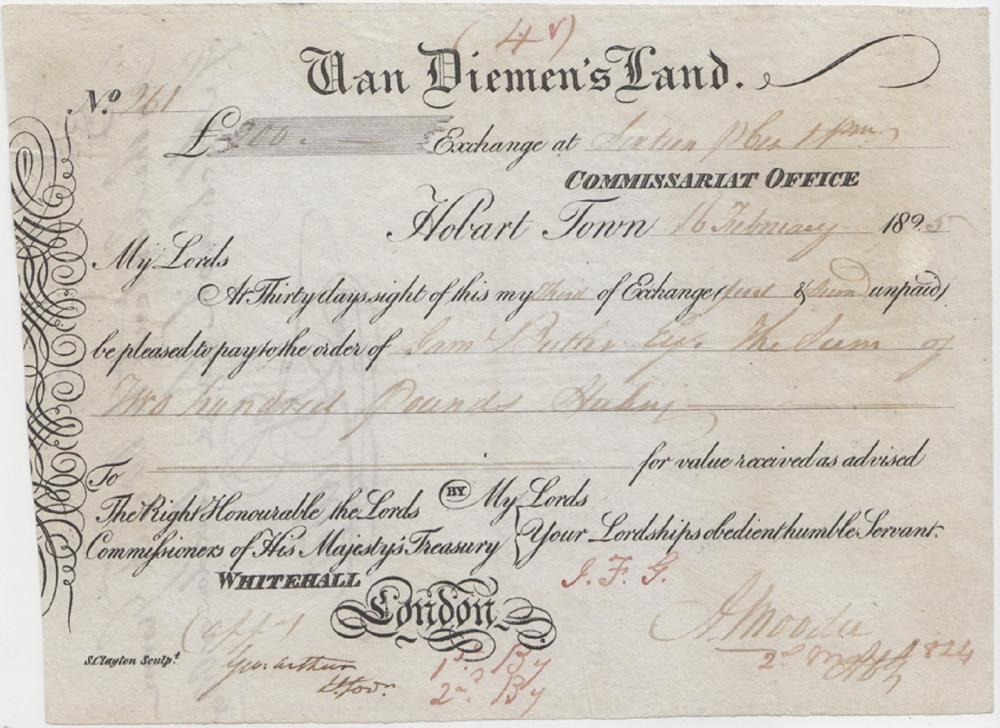 (4)
Van Diemen's Land.
No. 261
£ 200. Exchange at Sixteen P Cent Prm
COMMISSARIAT OFFICE
Hobart Town 16 February 1825
My Lords
At Thirty days sight of this my third of Exchange (first & Second unpaid)
be pleased to pay to the order of Sam'l Butler Esqr. The Sum of
Two hundred Pounds
for value received as advised
To
The Right Honourable the Lords BY My Lords
Commissioners of His Majesty's Treasury Your Lordships obedient humble Servant.
WHITEHALL J. F. G.
London
A Moodie
(appd)
S. Clayton Sculpt. Geo: Arthur 1st By
Lt Govr. 2nd By
1824